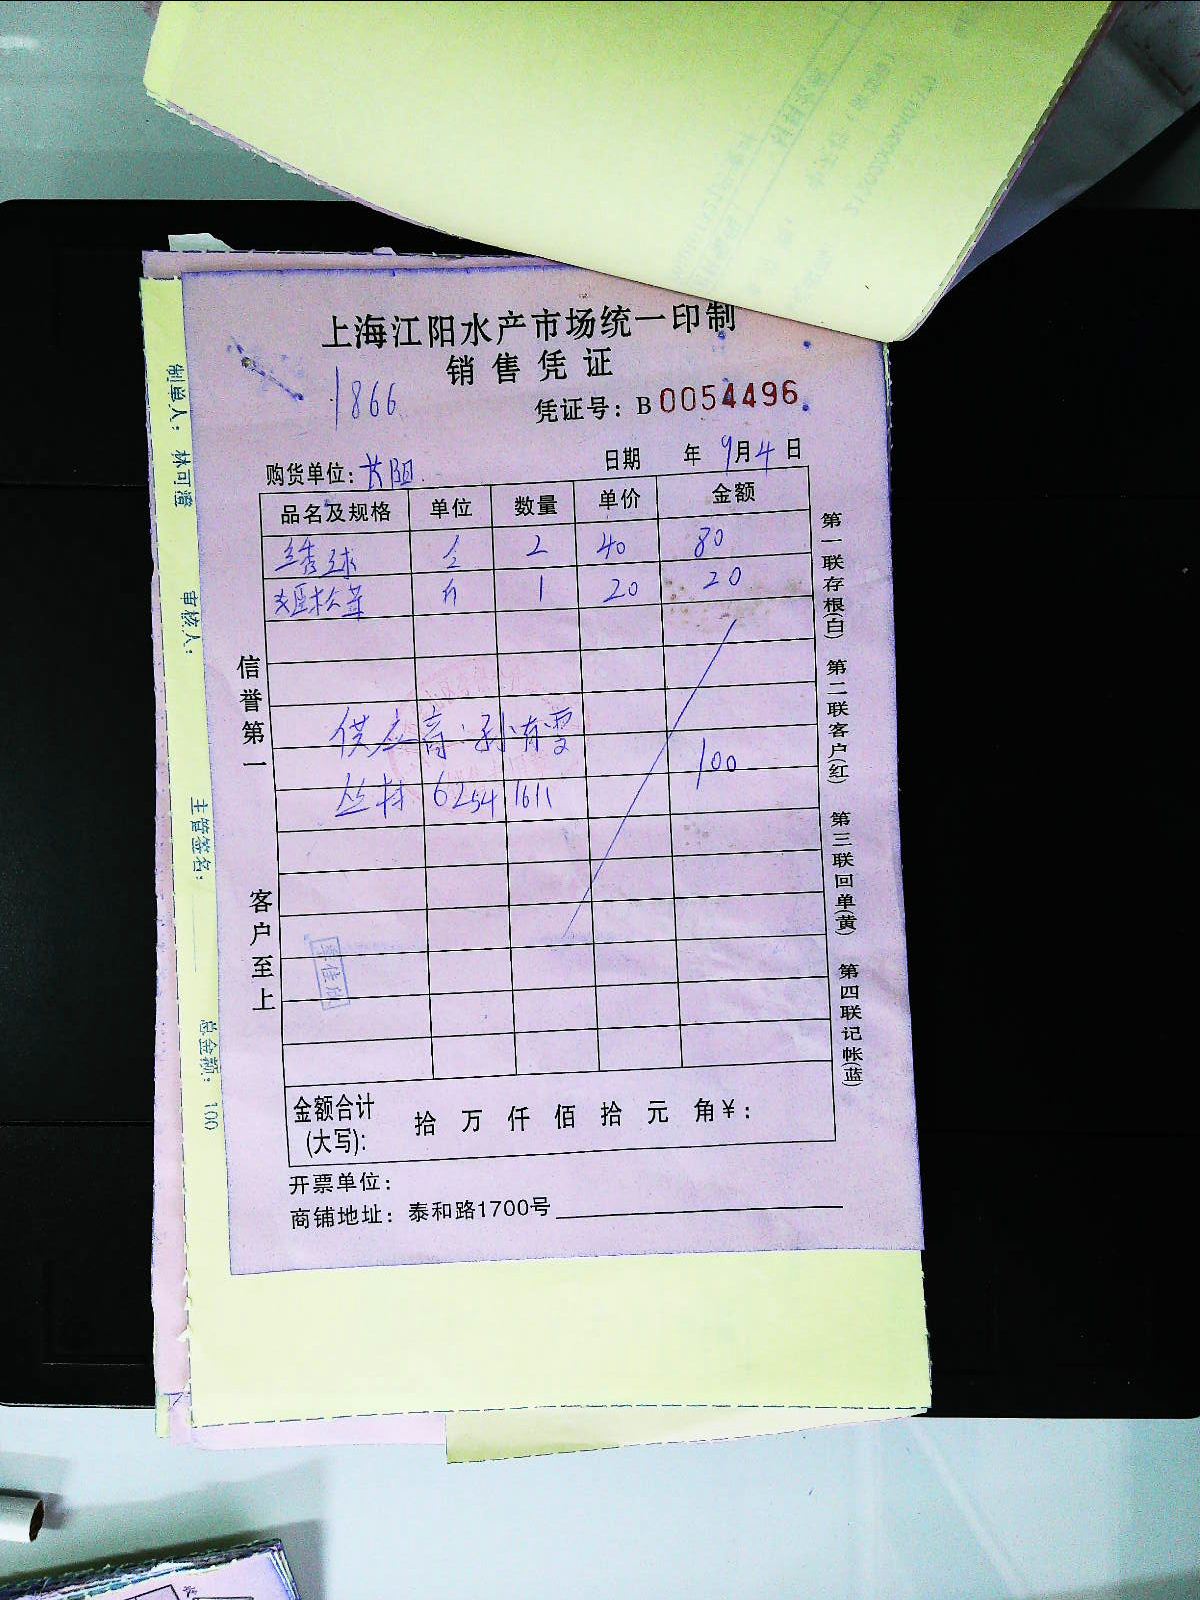 上海江阳水产市场统一印制
销售凭证
1866
凭证号：B 0054496
购货单位：长阳
日期 年 9月4日
品名及规格 单位 数量 单价 金额
绣球 2 40 80
松茸 斤 1 20 20
供应商：孙有雯
丛林 62541611
100
金额合计(大写)： 拾 万 仟 佰 拾 元 角 ¥：
开票单位：
商铺地址：泰和路1700号
信誉第一
客户至上
第一联存根(白) 第二联客户(红) 第三联回单(黄) 第四联记帐(蓝)
制单人：林可澄 审核人： 主管签名： 总金额：100